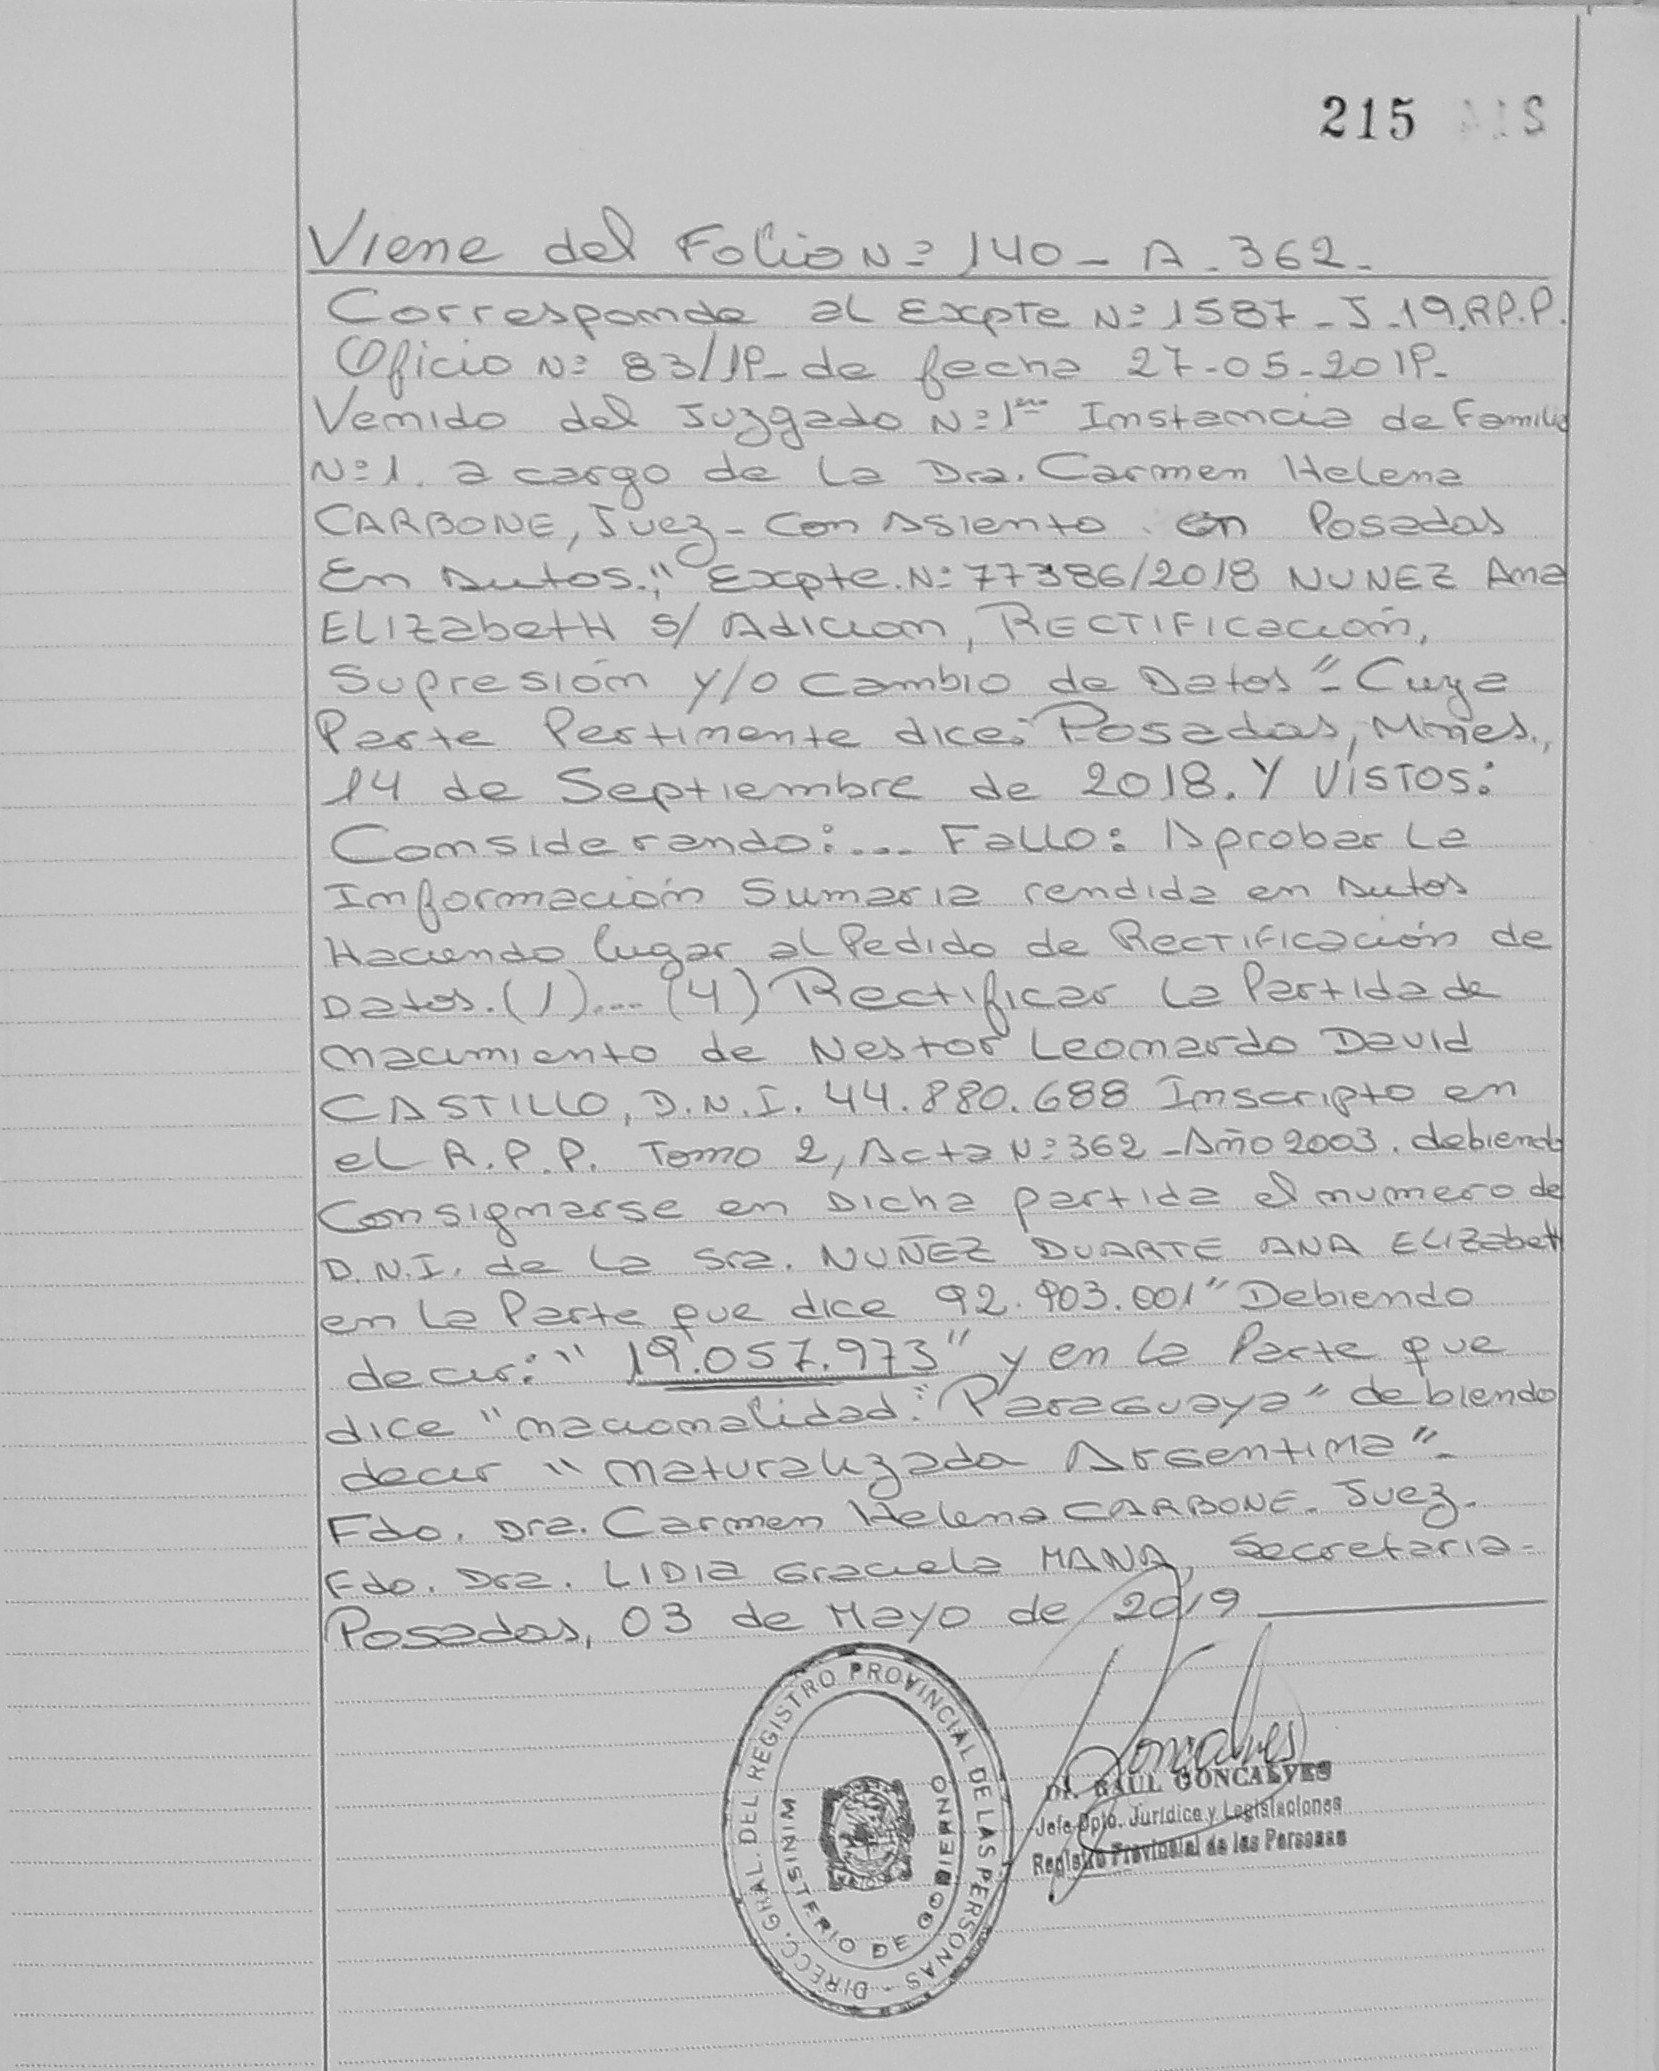 215
Viene del Folio Nº 140 - A - 362 -
Corresponde al Expte Nº 1587 - J - 19. RP.P.
Oficio Nº 83/19 - de fecha 27-05-2019 -
Venido del Juzgado Nº 1ra Instancia de Familia
Nº 1. a cargo de la Dra. Carmen Helena
CARBONE, Juez - Con Asiento en Posadas
En Autos: "Expte. Nº 77386/2018 NUNEZ Ana
ELIZabetH s/ Adicion, RECTIFICación,
Supresión y/o Cambio de Datos" - Cuya
Parte Pertinente dice: Posadas, Mnes.,
14 de Septiembre de 2018. Y VISTOS:
Considerando:... Fallo: Aprobar La
Información Sumaria rendida en Autos
Haciendo lugar al Pedido de RECTIFICación de
Datos. (1).... (4) Rectificar la Partida de
nacimiento de Nestor Leonardo David
CASTILLO, D.N.I. 44.880.688 Inscripto en
el R.P.P. Tomo 2, Acta Nº 362 - Año 2003. debiendo
Consignarse en Dicha partida el numero de
D.N.I. de la Sra. NUÑEZ DUARTE ANA ELIZabetH
en la Parte que dice 92.903.001" Debiendo
decir: "19.057.973" y en la Parte que
dice "nacionalidad: "Paraguaya" debiendo
decir "naturalizada Argentina" -
Fdo. Dra. Carmen Helena CARBONE - Juez.
Fdo. Dra. LIDIA Graciela MANA, Secretaria -
Posadas, 03 de Mayo de 2019
DIRECC. GRAL. DEL REGISTRO PROVINCIAL DE LAS PERSONAS -
MINISTERIO DE GOBIERNO
Goncalves
Dr. RAUL GONCALVES
Jefe Dpto. Jurídica y Legislaciones
Registro Provincial de las Personas